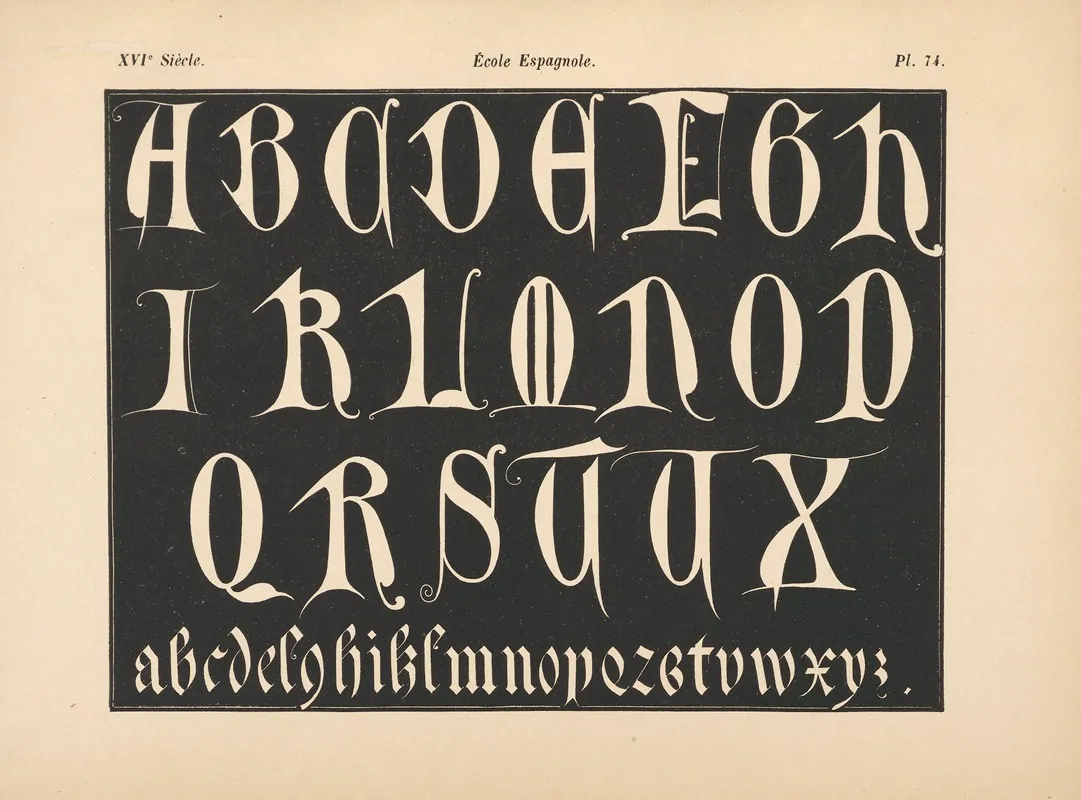 XVIe Siècle. École Espagnole. Pl. 74.
A B C D E F G h
I K L M N O P
Q R S T U X
a b c d e f g h i k l m n o p q r s t v w x y z .